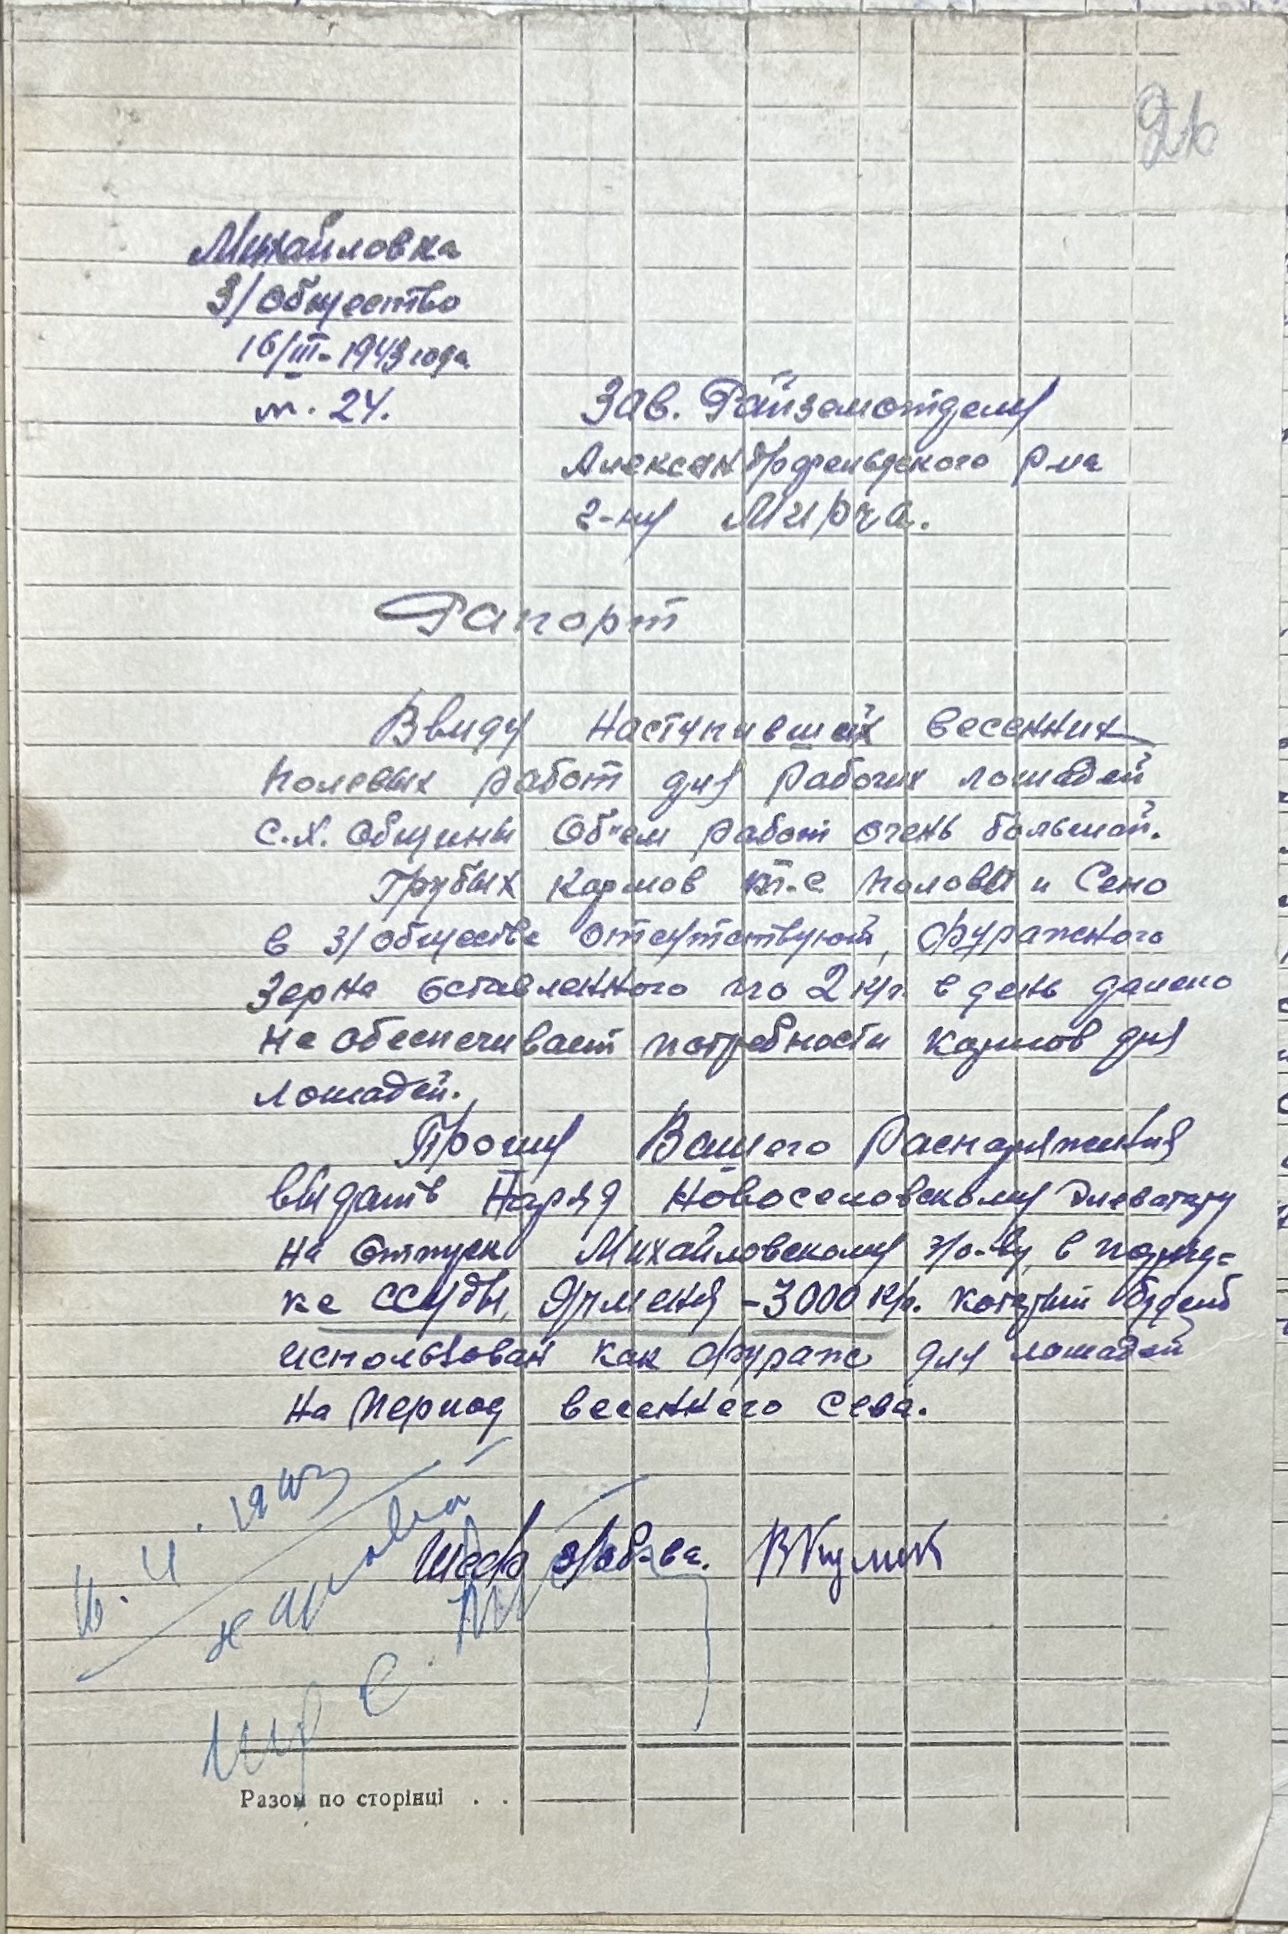 26
Михайловка
З/Общество
16/III-1943 года
н. 24.
Зав. Райземотделу
Александрфельдского р-на
г-ну Мирча.
Рапорт
Ввиду наступивших весенних
полевых работ для рабочих лошадей
с.х. Общины Об"ем работ очень большой.
Грубых кормов т.е половы и Сено
в З/обществе отсутствуют, фуражного
Зерна оставленного по 2 кгр. в день далеко
не обеспечивает потребности кормов для
лошадей.
Прошу Вашего Распаряжения
выдать Наряд Новоселовскому Элеватору
на отпуск Михайловскому з/о-ву, в поряд-
ке ссуды, Ячменя - 3000 кгр. который будет
использован как фураж для лошадей
на период весеннего Сева.
Шеф з/об-ва. ВКулик
1943
Разом по сторінці . .